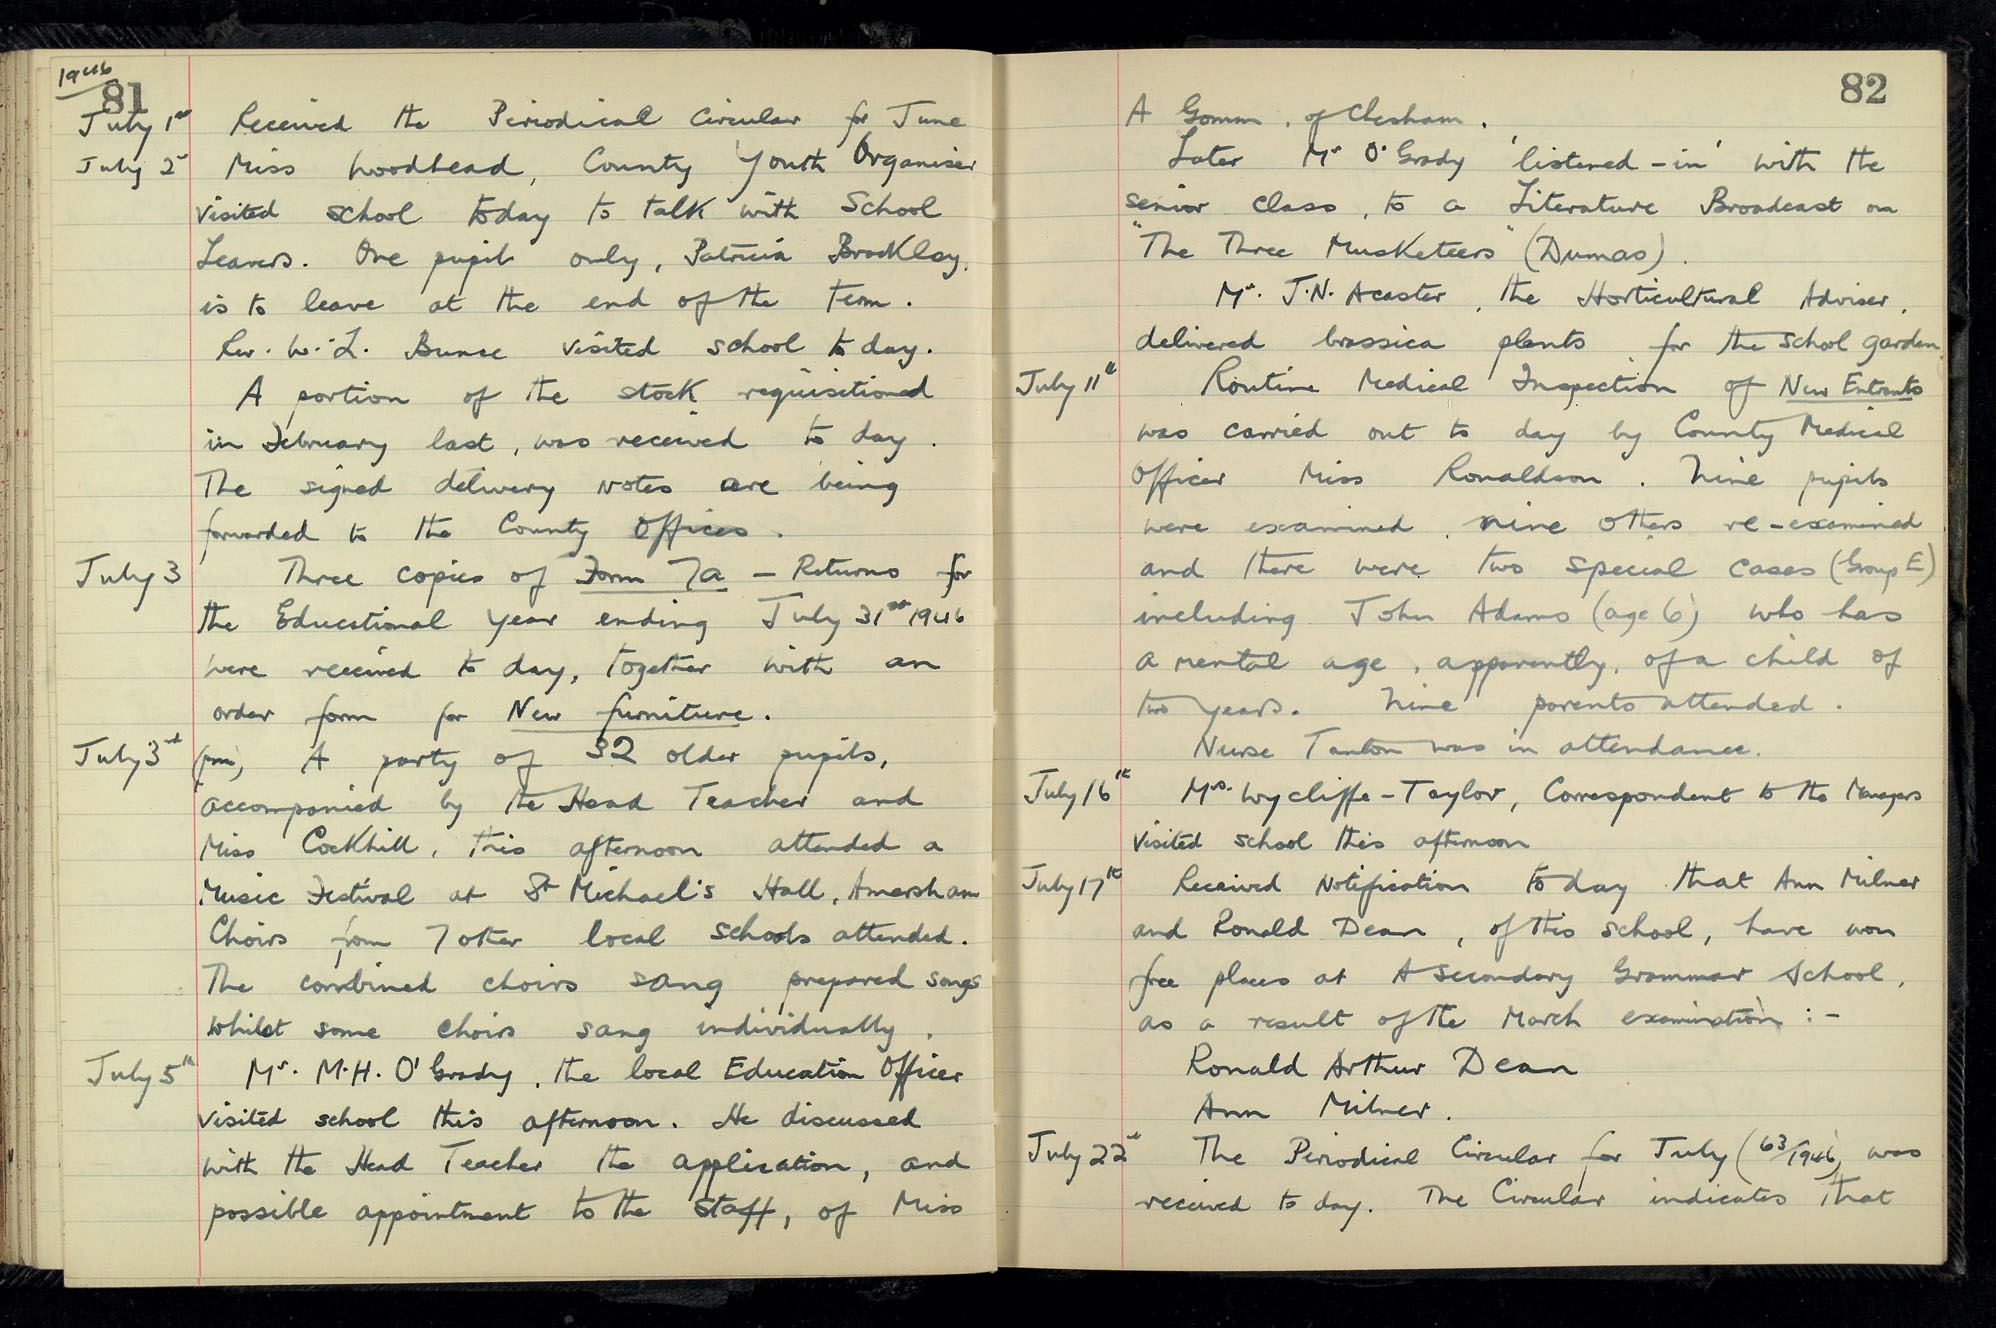 1946
81
July 1st Received the Periodical Circular for June
July 2nd Miss Woodhead, County Youth Organiser
visited school today to talk with School
Leavers. One pupil only, Patricia Brackley,
is to leave at the end of the term.
Rev. W. L. Bunce visited school to day.
A portion of the stock requisitioned
in February last, was received to day.
The signed delivery notes are being
forwarded to the County Offices.
July 3 Three copies of Form 7a – Returns for
the Educational Year ending July 31st 1946
were received to day, together with an
order form for New furniture.
July 3rd (pm) A party of 32 older pupils,
accompanied by the Head Teacher and
Miss Cockhill, this afternoon attended a
Music Festival at St Michael's Hall, Amersham
Choirs from 7 other local schools attended.
The combined choirs sang prepared songs
whilst some choirs sang individually.
July 5th Mr. M.H. O'Grady, the local Education Officer
visited school this afternoon. He discussed
with the Head Teacher the application, and
possible appointment to the staff, of Miss
82
A Gomm, of Chesham.
Later Mr O'Grady 'listened-in' with the
senior class, to a Literature Broadcast on
"The Three Musketeers" (Dumas).
Mr. J.N. Acaster, the Horticultural Adviser,
delivered brassica plants for the school garden.
July 11th Routine Medical Inspection of New Entrants
was carried out to day by County Medical
Officer Miss Ronaldson. Nine pupils
were examined, nine others re-examined
and there were two special cases (Group E)
including John Adams (age 6) who has
a mental age, apparently, of a child of
two years. Nine parents attended.
Nurse Tanton was in attendance.
July 16th Mrs. Wycliffe-Taylor, Correspondent to the Managers
visited school this afternoon
July 17th Received Notification to day that Ann Milner
and Ronald Dean, of this school, have won
free places at A Secondary Grammar School,
as a result of the March examination :-
Ronald Arthur Dean
Ann Milner.
July 22nd The Periodical Circular for July (63/1946) was
received to day. The Circular indicates that